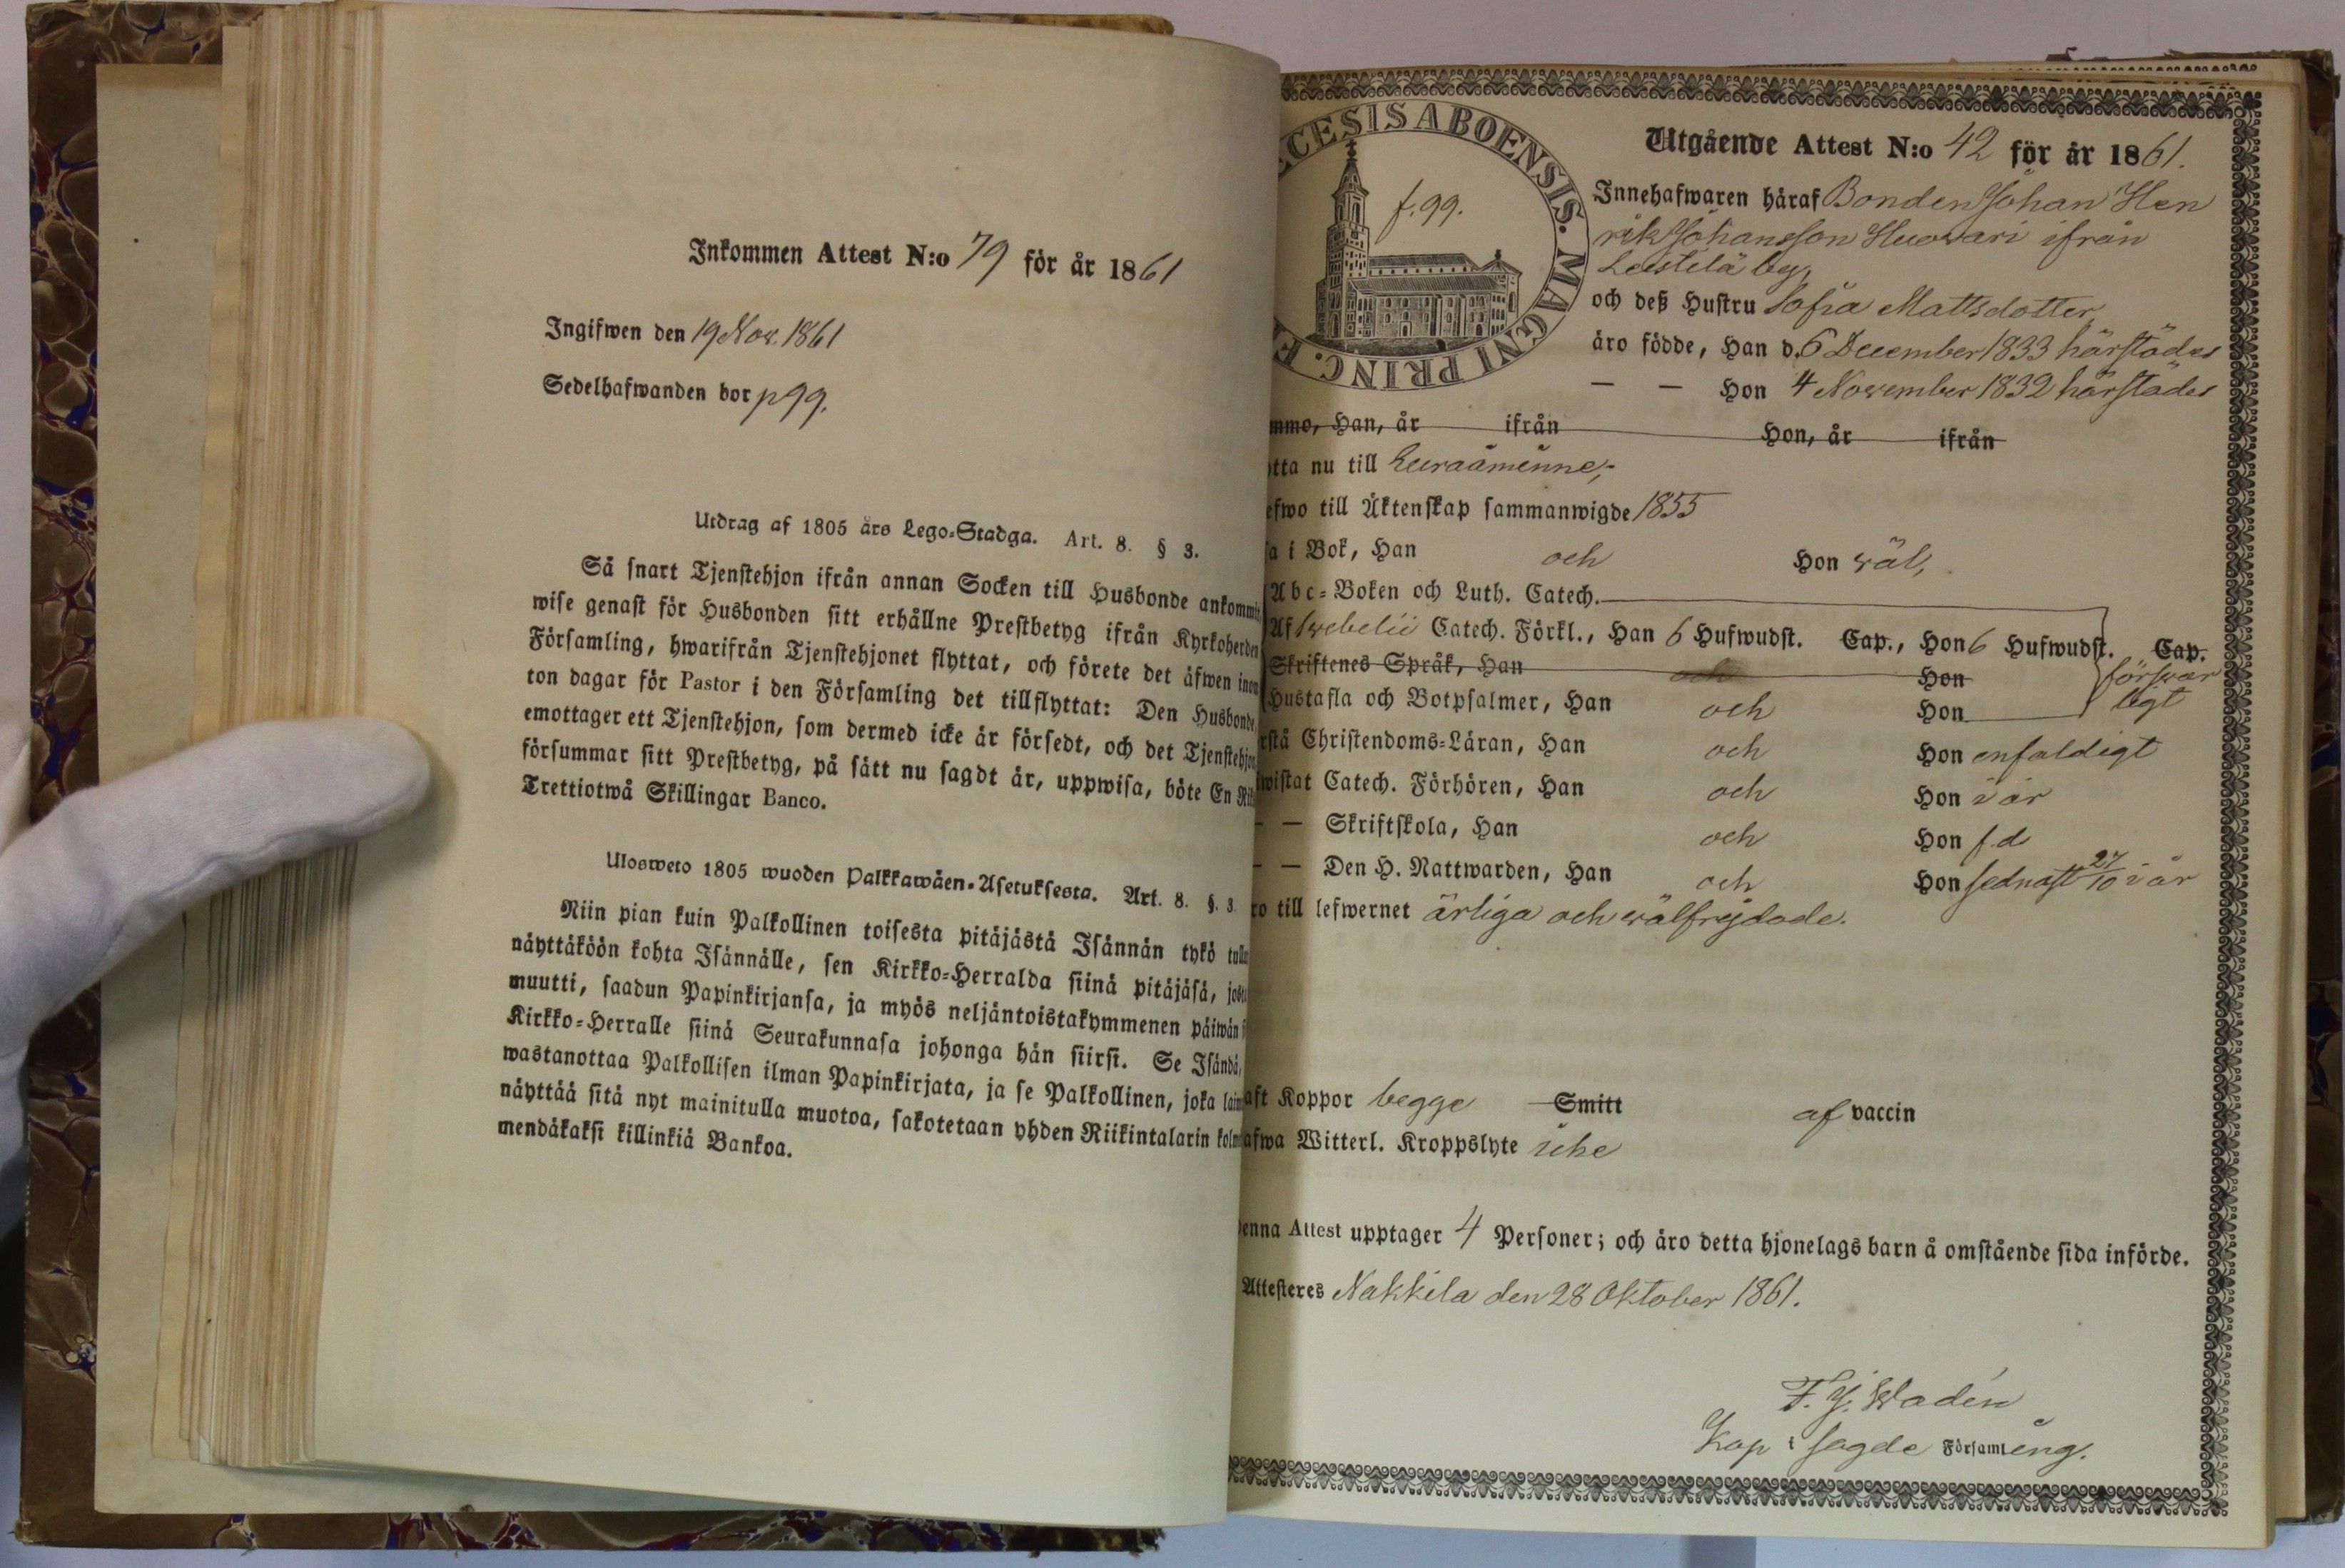 Inkommen Attest N:o 79 för år 1861
Ingifwen den 19 Nov. 1861
Sedelhafwanden bor p 99.
Utdrag af 1805 års Lego-Stadga. Art. 8. § 3.
Så snart Tjenstehjon ifrån annan Socken till Husbonde ankommit
wise genast för Husbonden sitt erhållne Prestbetyg ifrån Kyrkoherden
Församling, hwarifrån Tjenstehjonet flyttat, och förete det äfwen inom
ton dagar för Pastor i den Församling det tillflyttat: Den Husbonde,
emottager ett Tjenstehjon, som dermed icke är försedt, och det Tjenstehjon
försummar sitt Prestbetyg, på sätt nu sagdt är, uppwisa, böte En Rik
Trettiotwå Skillingar Banco.
Ulosweto 1805 wuoden Palkkawäen-Asetuksesta. Art. 8. §. 3.
Niin pian kuin Palkollinen toisesta pitäjästä Isännän tykö tullu
näyttäköön kohta Isännälle, sen Kirkko-Herralda siinä pitäjäsä, josta
muutti, saadun Papinkirjansa, ja myös neljäntoistakymmenen päiwän s
Kirkko-Herralle siinä Seurakunnasa johonga hän siirsi. Se Isändä,
wastanottaa Palkollisen ilman Papinkirjata, ja se Palkollinen, joka laim
näyttää sitä nyt mainitulla muotoa, sakotetaan yhden Riikintalarin kolm
mendäkaksi killinkiä Bankoa.
CESIS ABOENSIS. MAGNI PRINC. F
f. 99.
Utgående Attest N:o 42 för år 1861.
Innehafwaren häraf Bonden Johan Hen
rik Johansson Huovari ifrån
Leistilä by,
och deß Hustru Sofia Mattsdotter,
äro födde, Han d. 6 December 1833 härstädes
— — Hon 4 November 1832 härstädes
mmo, Han, år ifrån Hon, år ifrån
tta nu till Euraåminne,
efwo till Äktenskap sammanwigde 1855
sa i Bok, Han och Hon wäl,
Abc-Boken och Luth. Catech.
Af Swebelii Catech. Förkl., Han 6 Hufwudst. Cap., Hon 6 Hufwudst. Cap.
Skriftenes Språk, Han och Hon försvar
Hustafla och Botpsalmer, Han och Hon ligt
rstå Christendoms-Läran, Han och Hon enfaldigt
wistat Catech. Förhören, Han och Hon i år
— — Skriftskola, Han och Hon f. d
— — Den H. Nattwarden, Han och Hon sednast 27/10 i år
ro till lefwernet ärliga och wälfrejdade.
aft Koppor begge Smitt af vaccin
afwa Witterl. Kroppslyte icke
Denna Attest upptager 4 Personer; och äro detta hjonelags barn å omstående sida införde.
Attesteres Nakkila den 28 Oktober 1861.
Kap i sagde Församling.